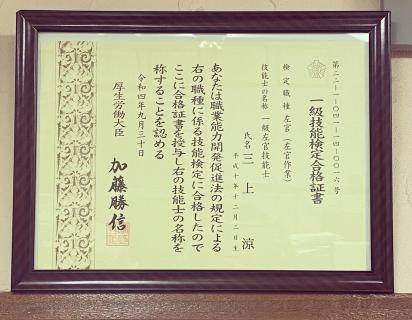 第二二ー一ー〇四一ー一四ー〇〇一六号
一級技能検定合格証書
検定職種 左官（左官作業）
技能士の名称 一級左官技能士
氏名 三上 涼
平成十年十二月二日生
あなたは職業能力開発促進法の規定による
右の職種に係る技能検定に合格したので
ここに合格証書を授与し右の技能士の名称を
称することを認める
令和四年九月三十日
厚生労働大臣 加藤勝信